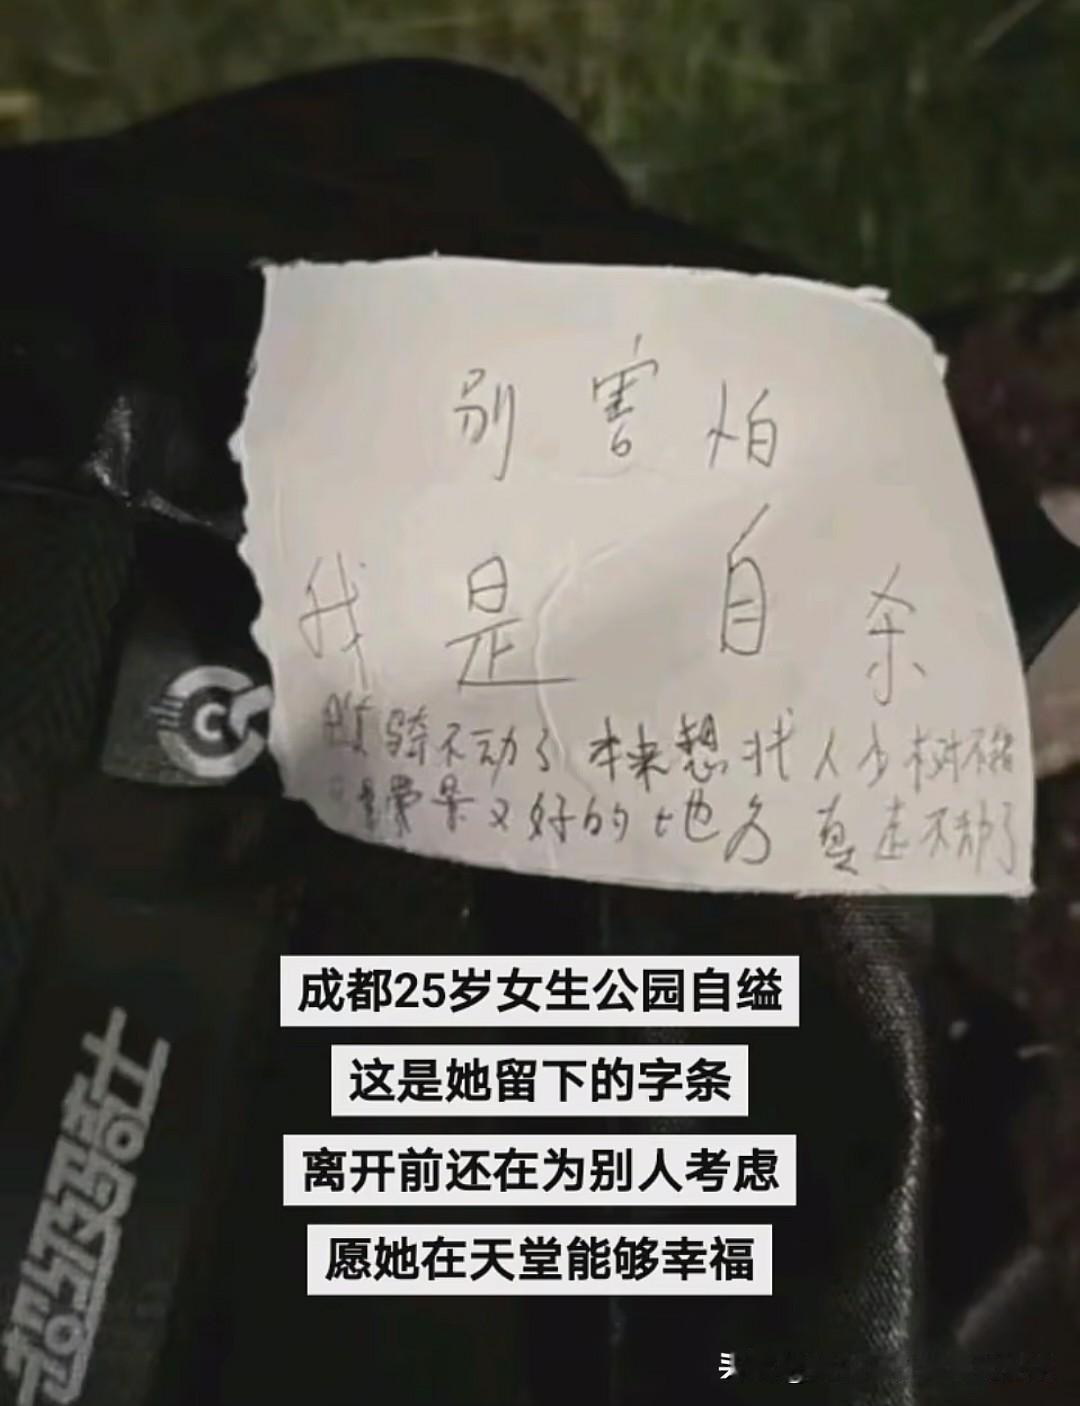 别害怕
我是自杀
骑不动了 本来想找人少树不错
景又好的地方 真走不动了
超级骑士
成都25岁女生公园自缢
这是她留下的字条
离开前还在为别人考虑
愿她在天堂能够幸福